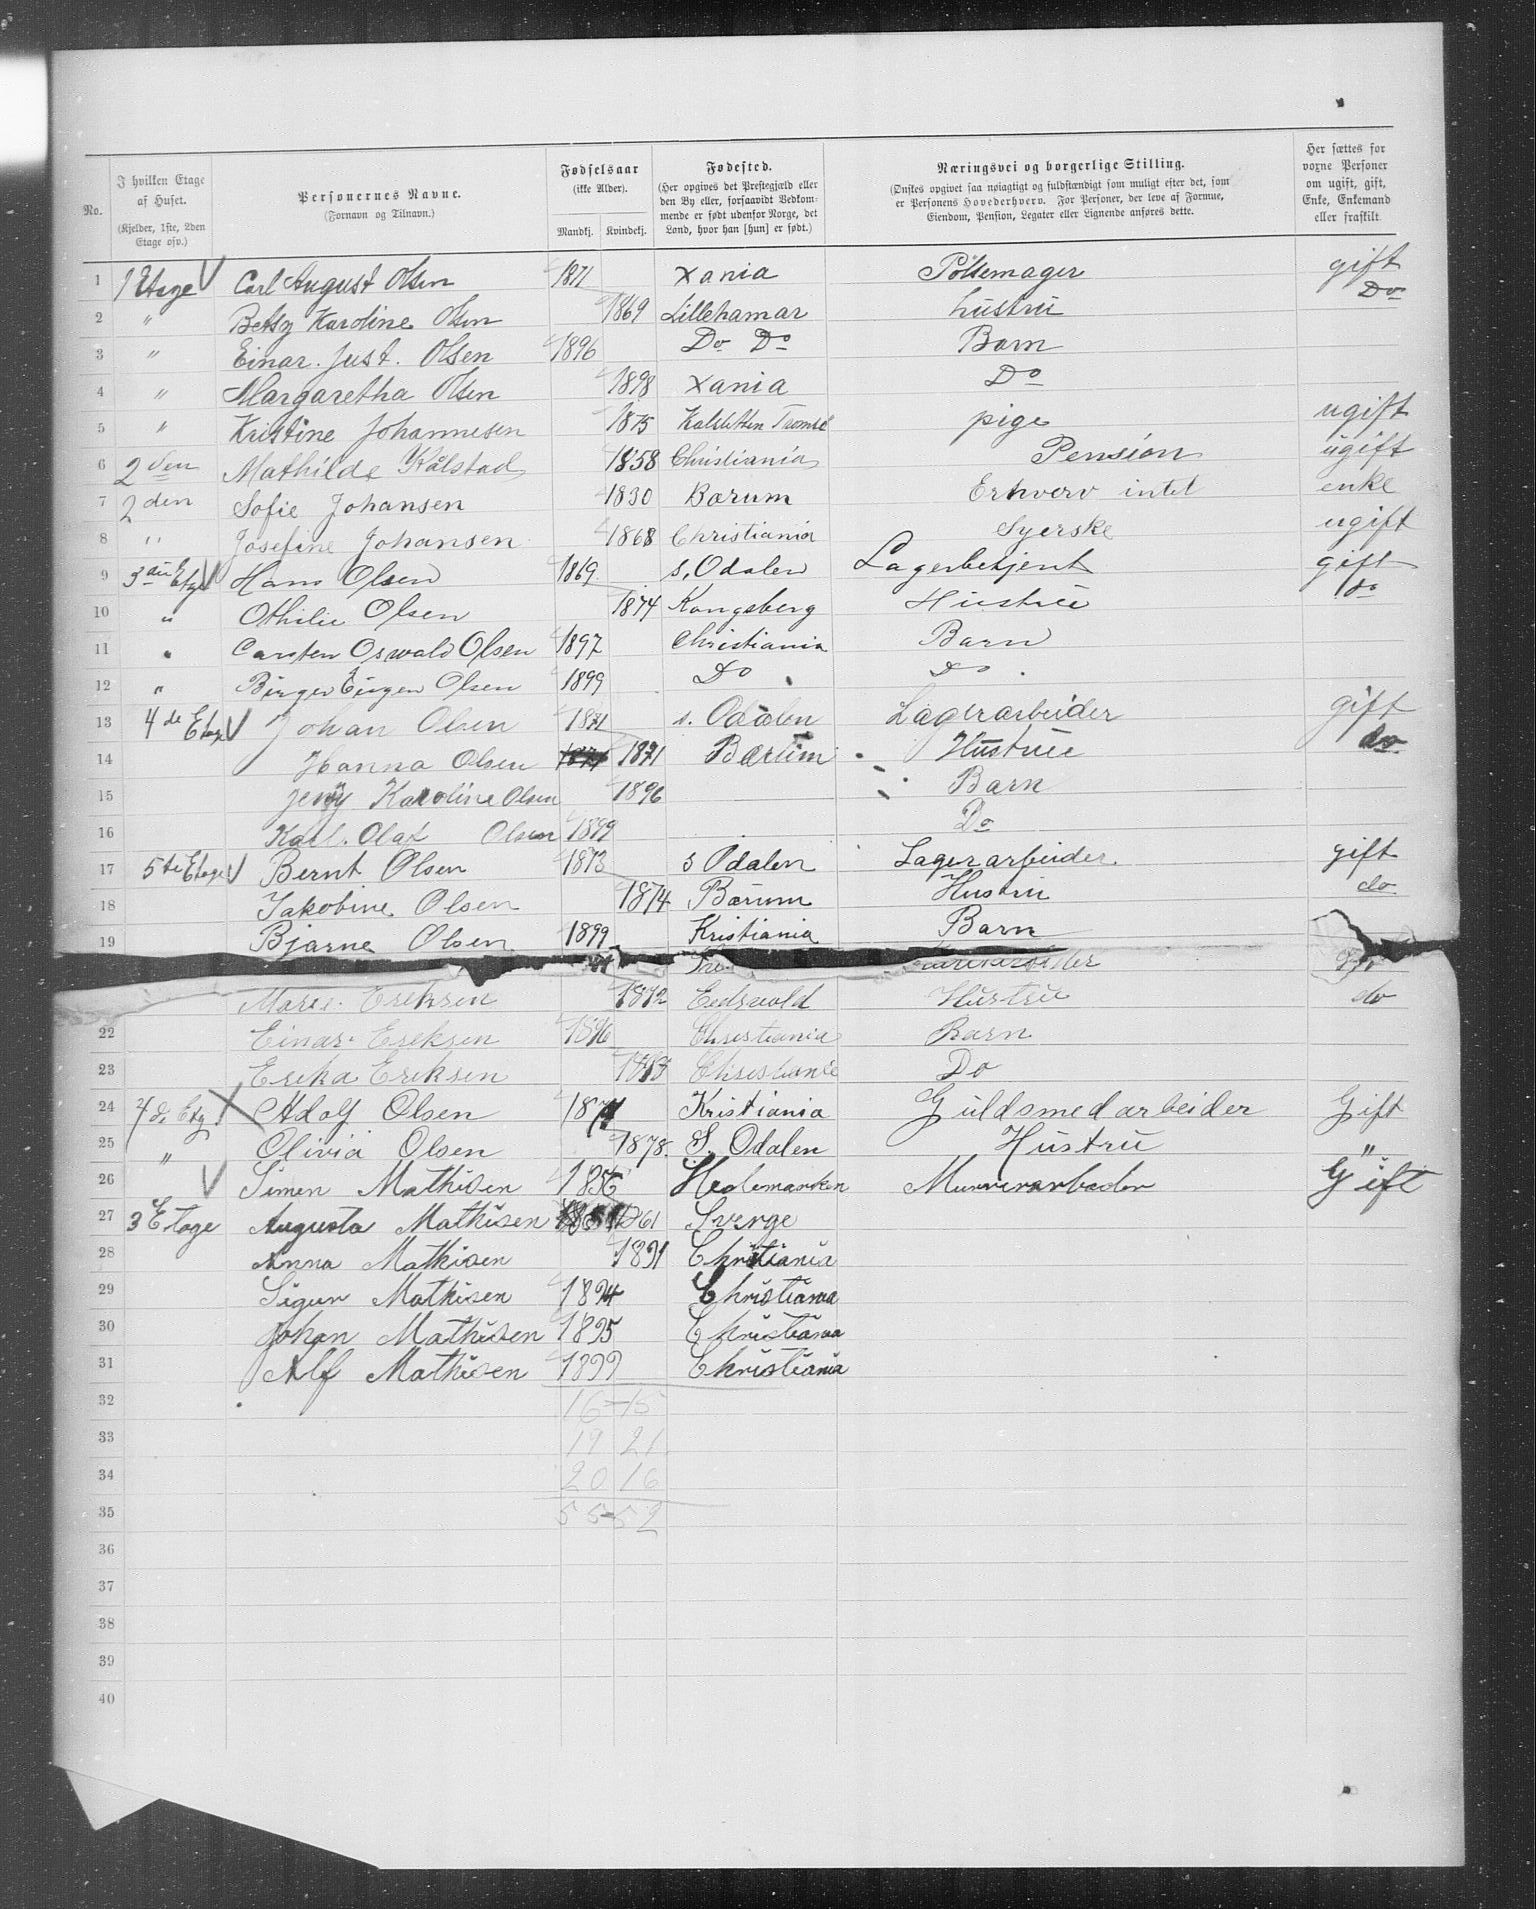 No.
I hvilken Etage af Huset. (Kjelder, 1ste, 2den Etage osv.)
Personernes Navne. (Fornavn og Tilnavn.)
Fødselsaar (ikke Alder). Mandkj. Kvindekj.
Fødested. (Her opgives det Prestegjæld eller den By eller, forsaavidt Vedkommende er født udenfor Norge, det Land, hvor han [hun] er født.)
Næringsvei og borgerlige Stilling. (Ønskes opgivet saa nøiagtigt og fuldstændigt som muligt efter det, som er Personens Hovederhverv. For Personer, der leve af Formue, Eiendom, Pension, Legater eller Lignende anføres dette.
Her sættes for voxne Personer om ugift, gift, Enke, Enkemand eller fraskilt
1 1 Etage V Carl August Olsen 1871 Xania Pölsemager gift
2 " Betsy Karoline Olsen 1869 Lillehamar hustru Do
3 " Einar. Just. Olsen 1896 Do Do Barn
4 " Margaretha Olsen 1898 Xania Do
5 " Kristine Johannesen 1875 Tromsö pige ugift
6 2 den Mathilde Kålstad 1858 Christiania Pension ugift
7 2 den Sofie Johansen 1830 Bærum Erhverv intet enke
8 " Josefine Johansen 1868 Christiania Syerske ugift
9 3 die Etg V Hans Olsen 1869 S. Odalen Lagerbetjent gift
10 " Othilie Olsen 1874 Kongsberg Hustrue do
11 " Carsten Oswald Olsen 1897 Christiania Barn
12 " Birger Eugen Olsen 1899 Do Do
13 4 de Etag V Johan Olsen 1871 s. Odalen Lagerarbeider gift
14 Hanna Olsen 1871 Bærum Hustrue do
15 Jeny Karoline Olsen 1896 Barn
16 Karl. Olaf Olsen 1899 Do
17 5 te Etage V Bernt Olsen 1873 s Odalen Lagerarbeider gift
18 Jakobine Olsen 1874 Bærum Hustru do
19 Bjarne Olsen 1899 Kristiania Barn
Marie Eriksen 1872 Eedsvold Hustrue do
22 Einar Eriksen 1896 Christiania Barn
23 Erika Eriksen Christiania Do
24 4 de Etg X Adolf Olsen 1871 Kristiania Guldsmedarbeider Gift
25 " Olivia Olsen 1878. S. Odalen Hustru "
26 V Simen Mathisen 1856 Hedemarken Murerarbeder Gift
27 3 Etage Augusta Mathisen 1861 Sverge
28 Anna Mathisen 1891 Christiania
29 Sigur Mathisen 1894 Christiania
30 Johan Mathisen 1895 Christiania
31 Alf Mathisen 1899 Christiania
32 16-15
33 19 21
34 20 16
35 55-52
36
37
38
39
40